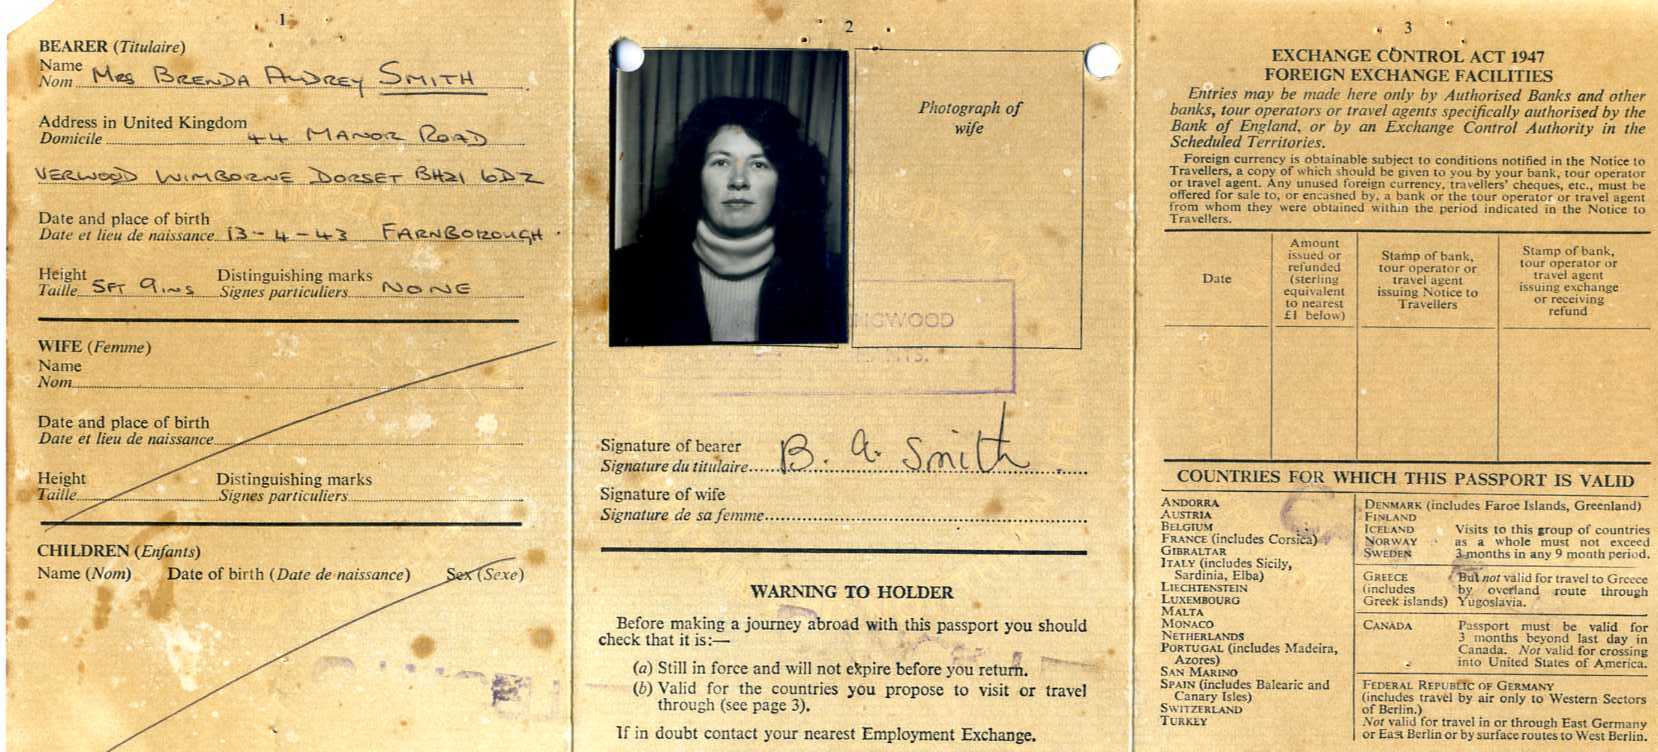 1
BEARER (Titulaire)
Name
Nom Mrs BRENDA AUDREY SMITH
Address in United Kingdom
Domicile 44 MANOR ROAD
VERWOOD WIMBORNE DORSET BH21 6DZ
Date and place of birth
Date et lieu de naissance 13-4-43 FARNBOROUGH
Height Distinguishing marks
Taille 5FT 9INS Signes particuliers NONE
WIFE (Femme)
Name
Nom
Date and place of birth
Date et lieu de naissance
Height Distinguishing marks
Taille Signes particuliers
CHILDREN (Enfants)
Name (Nom) Date of birth (Date de naissance) Sex (Sexe)
2
Photograph of
wife
NGWOOD
Signature of bearer
Signature du titulaire B. A. Smith
Signature of wife
Signature de sa femme
WARNING TO HOLDER
Before making a journey abroad with this passport you should
check that it is:—
(a) Still in force and will not expire before you return.
(b) Valid for the countries you propose to visit or travel
through (see page 3).
If in doubt contact your nearest Employment Exchange.
3
EXCHANGE CONTROL ACT 1947
FOREIGN EXCHANGE FACILITIES
Entries may be made here only by Authorised Banks and other
banks, tour operators or travel agents specifically authorised by the
Bank of England, or by an Exchange Control Authority in the
Scheduled Territories.
Foreign currency is obtainable subject to conditions notified in the Notice to
Travellers, a copy of which should be given to you by your bank, tour operator
or travel agent. Any unused foreign currency, travellers' cheques, etc., must be
offered for sale to, or encashed by, a bank or the tour operator or travel agent
from whom they were obtained within the period indicated in the Notice to
Travellers.
Date
Amount
issued or
refunded
(sterling
equivalent
to nearest
£1 below)
Stamp of bank,
tour operator or
travel agent
issuing Notice to
Travellers
Stamp of bank,
tour operator or
travel agent
issuing exchange
or receiving
refund
COUNTRIES FOR WHICH THIS PASSPORT IS VALID
ANDORRA
AUSTRIA
BELGIUM
FRANCE (includes Corsica)
GIBRALTAR
ITALY (includes Sicily,
Sardinia, Elba)
LIECHTENSTEIN
LUXEMBOURG
MALTA
MONACO
NETHERLANDS
PORTUGAL (includes Madeira,
Azores)
SAN MARINO
SPAIN (includes Balearic and
Canary Isles)
SWITZERLAND
TURKEY
DENMARK (includes Faroe Islands, Greenland)
FINLAND
ICELAND Visits to this group of countries
NORWAY as a whole must not exceed
SWEDEN 3 months in any 9 month period.
GREECE But not valid for travel to Greece
(includes by overland route through
Greek islands) Yugoslavia.
CANADA Passport must be valid for
3 months beyond last day in
Canada. Not valid for crossing
into United States of America.
FEDERAL REPUBLIC OF GERMANY
(includes travel by air only to Western Sectors
of Berlin.)
Not valid for travel in or through East Germany
or East Berlin or by surface routes to West Berlin.